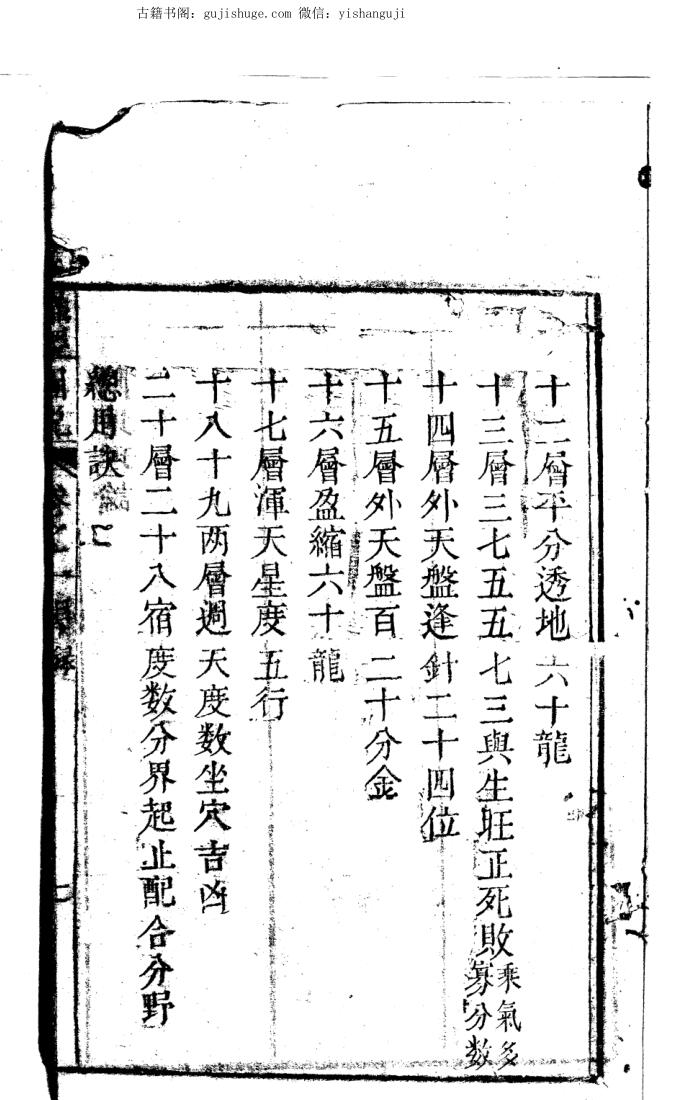 古籍书阁：gujishuge.com 微信：yishanguji
十二層平分透地六十龍
十三層三七五五七三與生旺正死敗乘氣多寡分数
十四層外天盤逢針二十四位
十五層外天盤百二十分金
十六層盈縮六十龍
十七層渾天星度五行
十八十九两層週天度数坐穴吉凶
二十層二十八宿度数分界起止配合分野
總用訣